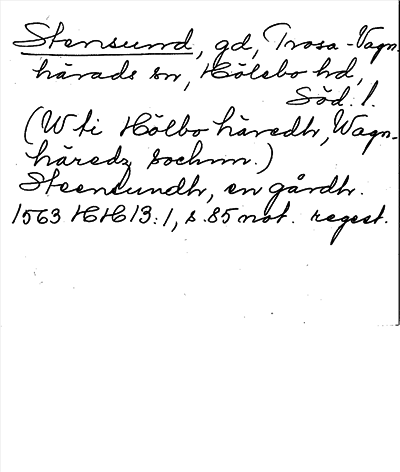 Stensund, gd, Trosa-Vagn-
härads sn, Hölebo hd,
Söd. l.
(W ti Hölbo häredh, Wagn-
häredz sochnn.)
Steensundh, en gårdh.
1563 HH 13:1, s. 85 not. regest.